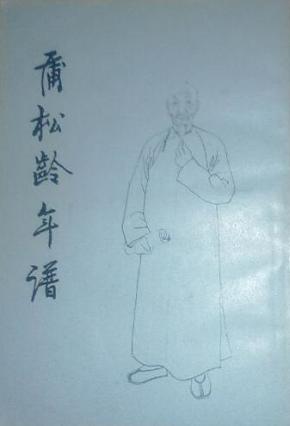 蒲松龄年谱